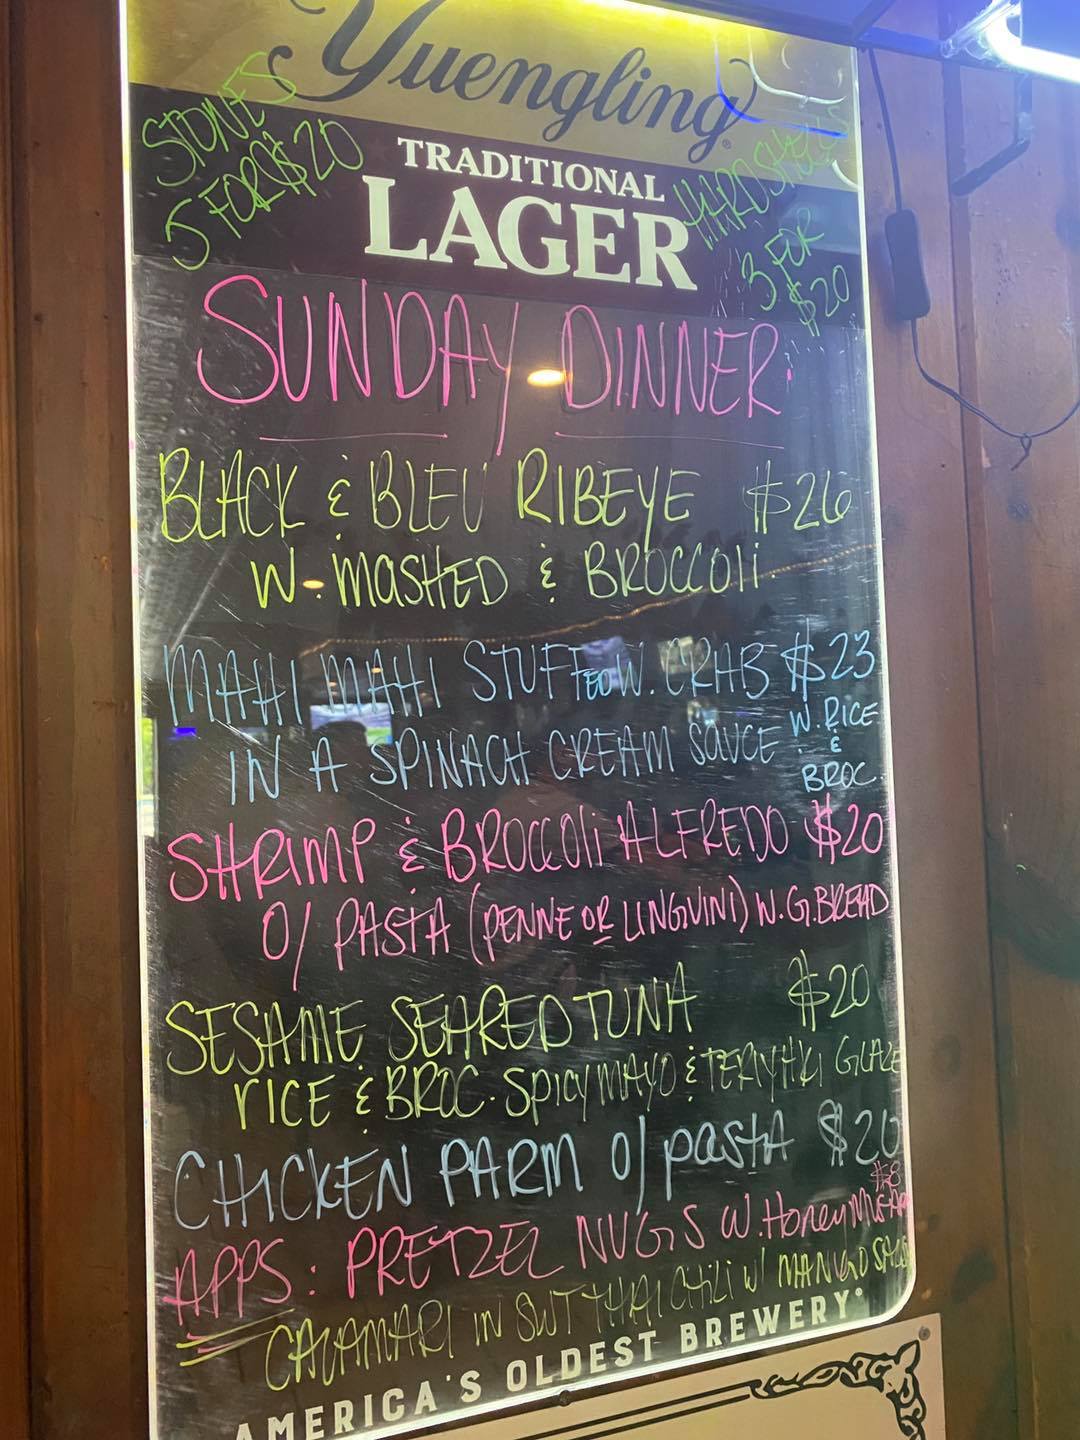 Yuengling®
STONES
5 FOR $20
TRADITIONAL
LAGER
HARDSHELLS
3 FOR
$20
SUNDAY DINNER:
BLACK & BLEU RIBEYE $26
W. MASHED & BROCCOLI.
MAHI MAHI STUFFED W. CRAB $23
IN A SPINACH CREAM SAUCE W. RICE
&
BROC.
SHRIMP & BROCCOLI ALFREDO $20
O/ PASTA (PENNE OR LINGUINI) W. G. BREAD
SESAME SEARED TUNA $20
RICE & BROC. SPICY MAYO & TERIYAKI GLAZE
CHICKEN PARM O/ PASTA $20
$8
APPS: PRETZEL NUGS W. Honey Mustard
CALAMARI IN SWT THAI CHILI W/ MANGO SALSA
AMERICA'S OLDEST BREWERY®